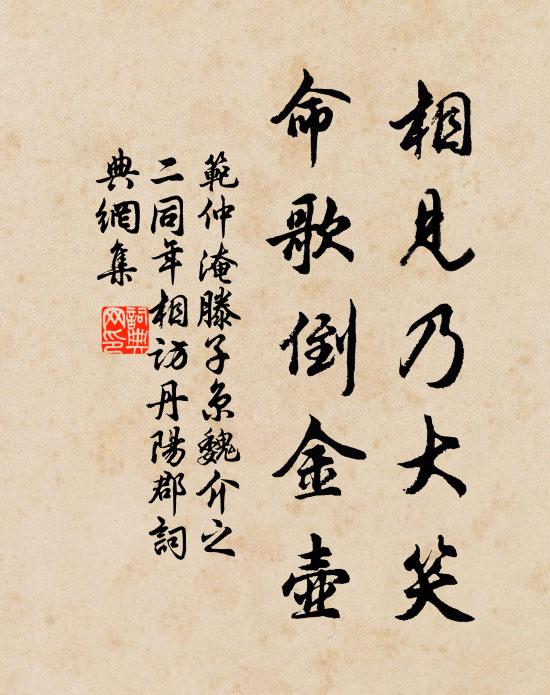 相見乃大笑
命歌倒金壺
範仲淹滕子京魏介之
二同年相訪丹陽郡詞
典網集
詞典网印